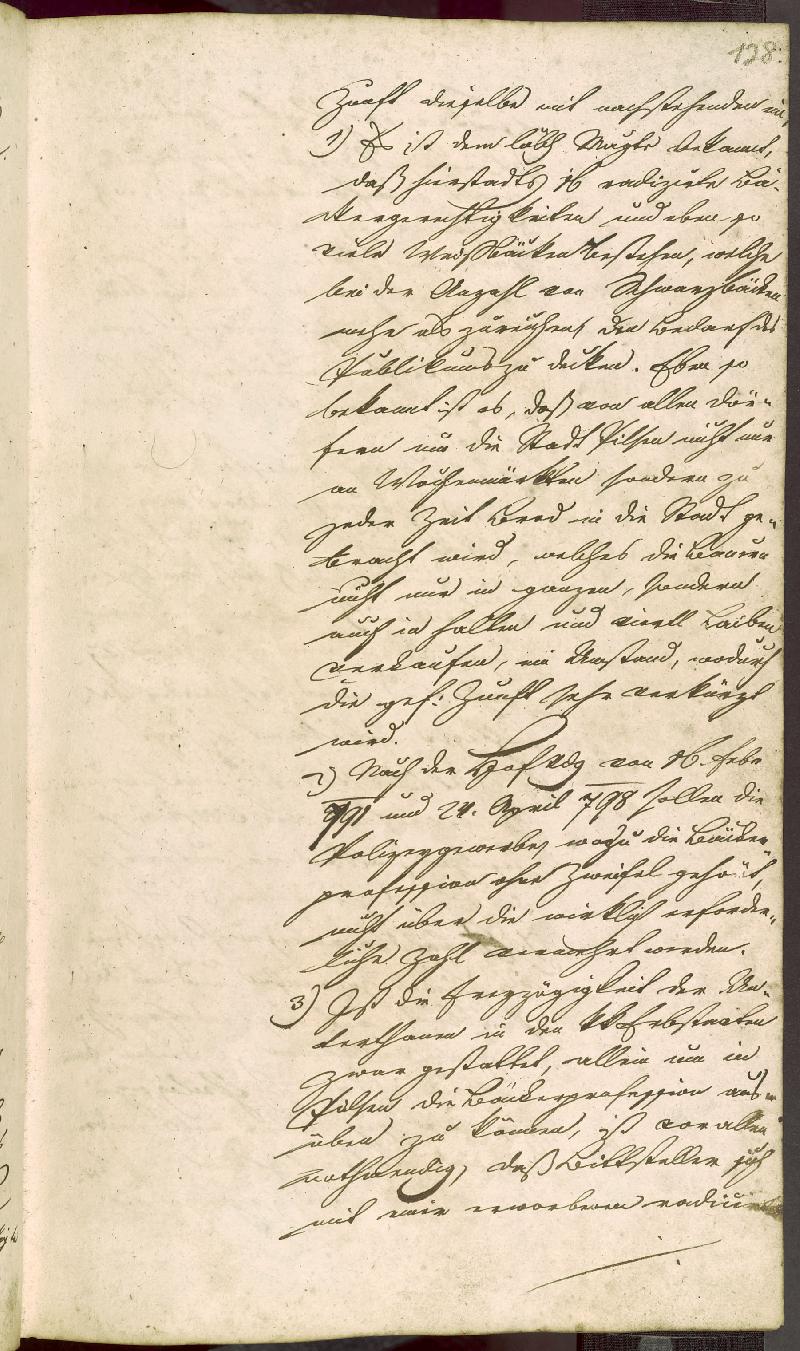 128.
Zunft dieselbe mit nachstehenden ein
1) Es ist dem löbl. Magte bekannt,
daß hierstadts 16 radizirte Bä-
ckergerechtigkeiten und eben so
viele Weißbäcken bestehen, welche
bei der Anzahl von Schwarzbäcken
mehr als zureichen, den Bedarf des
Publikums zu decken. Eben so
bekannt ist es, daß von allen Dör-
fern um die Stadt Pilsen nicht nur
an Wochenmärkten sondern zu
jeder Zeit Brod in die Stadt ge-
bracht wird, welches die Bauern
nicht nur in ganzen, sondern
auch in halben und viertl Laiben
verkaufen, ein Umstand, wodurch
die gef: Zunft sehr verkürzt
wird.
2) Nach der Hof Vdg von 16. Febr
791 und 24. April 798 sollen die
Polizeygewerbe, wozu die Bäcker-
profession ohne Zweifel gehört,
nicht über die wirklich erforder-
liche Zahl vermehrt werden.
3) Ist die Freyzügigkeit der Un-
terthanen in den kk Erbstaaten
zwar gestattet, allein um in
Pilsen die Bäckerprofession aus-
üben zu können, ist vor allen
nothwendig, daß Bittsteller sich
mit einer erworbenen radizir